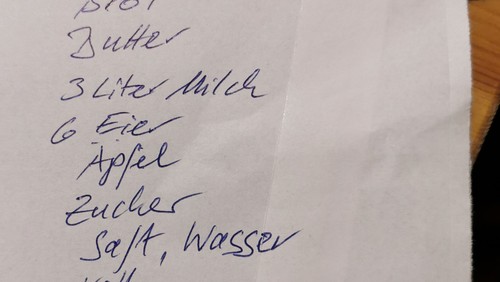 Brot
Butter
3 Liter Milch
6 Eier
Äpfel
Zucker
Saft, Wasser